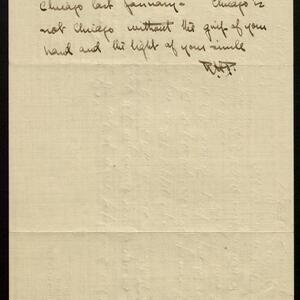 Chicago last January – Chicago is
not Chicago without the grip of your
hand and the light of your smile